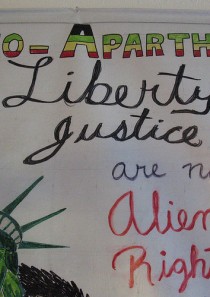 O-APARTH
Liberty
Justice
are n
Alien
Right